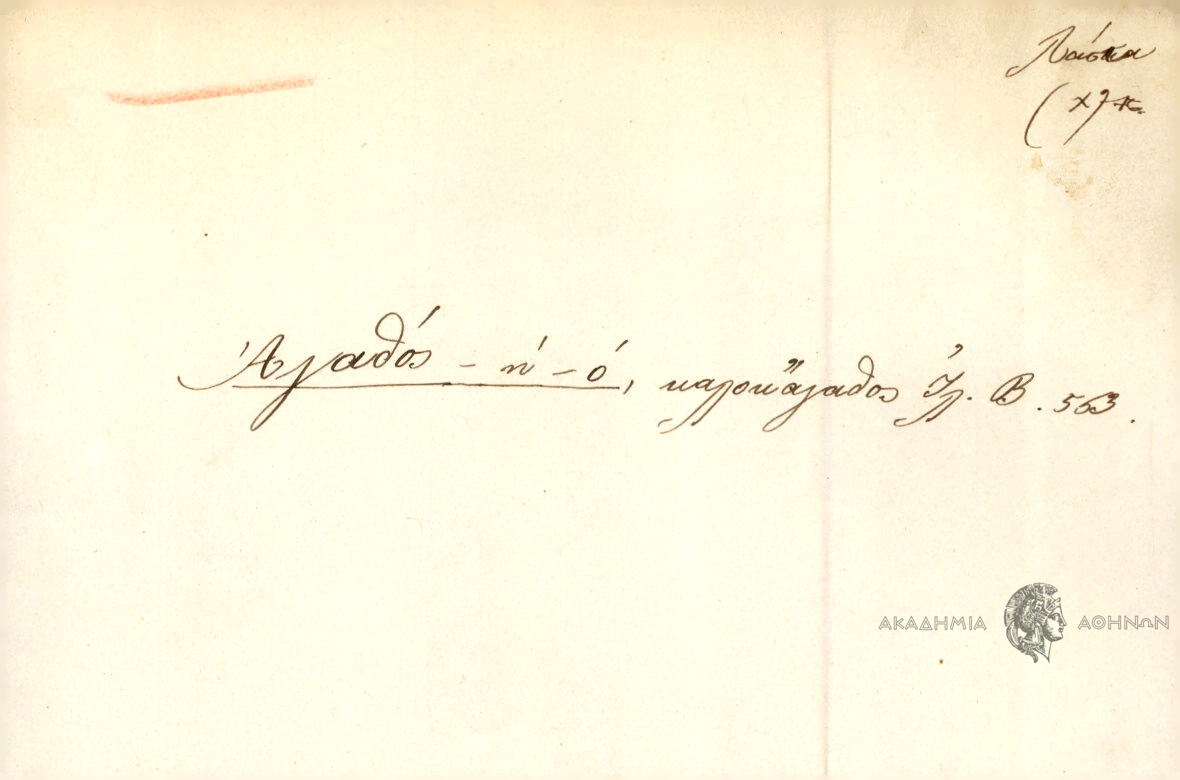 Λάσκα
Ἀγαθός -ή -ό, καλοκἄγαθος Ἰλ. Β. 563.
ΑΚΑΔΗΜΙΑ ΑΘΗΝΩΝ